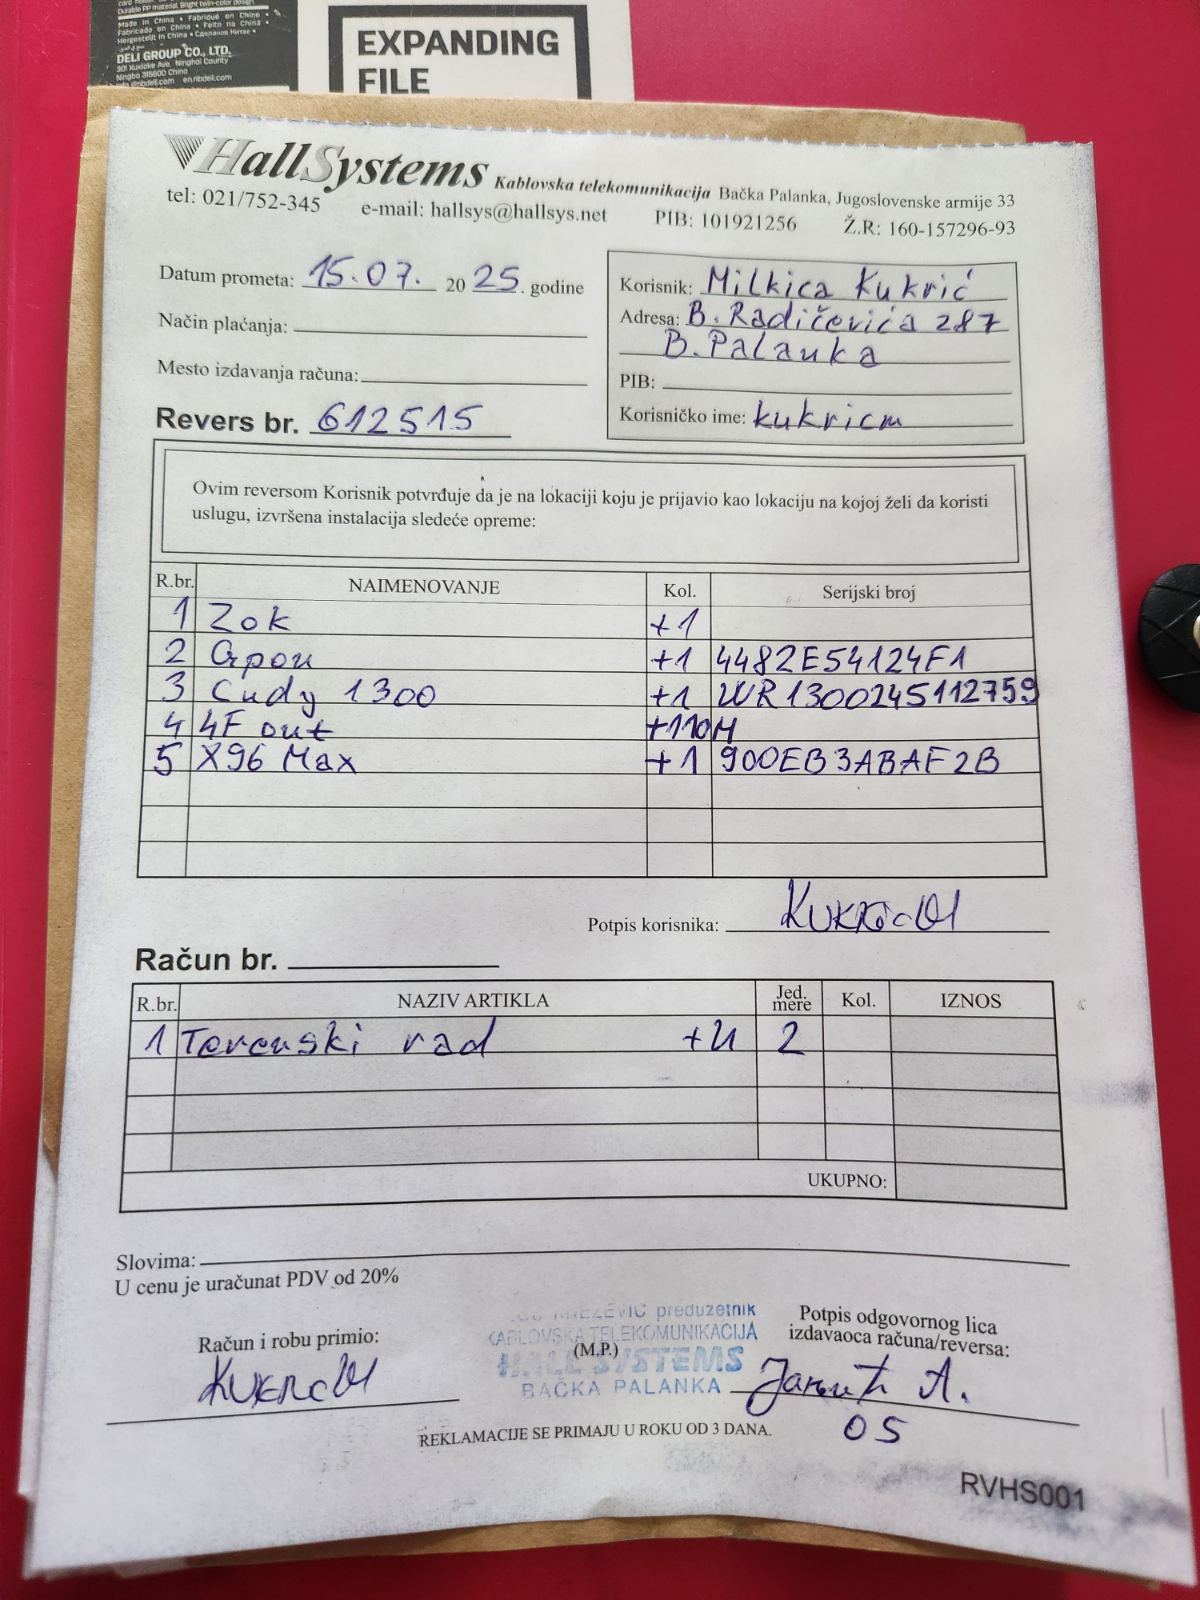 Made in China • Fabriqué en Chine •
Fabricado en China • Feito na China •
DELI GROUP CO., LTD.
301 Xuxiake Ave. Ninghai County
Ningbo 315600 China
EXPANDING
FILE
HallSystems Kablovska telekomunikacija Bačka Palanka, Jugoslovenske armije 33
tel: 021/752-345 e-mail: hallsys@hallsys.net PIB: 101921256 Ž.R: 160-157296-93
Datum prometa: 15.07. 2025. godine
Način plaćanja:
Mesto izdavanja računa:
Revers br. 612515
Korisnik: Milkica Kukrić
Adresa: B. Radičevića 287
B. Palanka
PIB:
Korisničko ime: kukricm
Ovim reversom Korisnik potvrđuje da je na lokaciji koju je prijavio kao lokaciju na kojoj želi da koristi
uslugu, izvršena instalacija sledeće opreme:
R.br. NAIMENOVANJE Kol. Serijski broj
1 Zok +1
2 Gpon +1 4482E54124F1
3 Cudy 1300 +1 WR1300245112759
4 4F out +110M
5 X96 Max +1 900EB3ABAF2B
Potpis korisnika: Kukrić M
Račun br.
R.br. NAZIV ARTIKLA Jed. mere Kol. IZNOS
1 Terenski rad +U 2
UKUPNO:
Slovima:
U cenu je uračunat PDV od 20%
Račun i robu primio:
Kukrić M
KNEŽEVIĆ preduzetnik
KABLOVSKA TELEKOMUNIKACIJA
(M.P.)
HALL SYSTEMS
BAČKA PALANKA
Potpis odgovornog lica
izdavaoca računa/reversa:
A.
05
REKLAMACIJE SE PRIMAJU U ROKU OD 3 DANA.
RVHS001